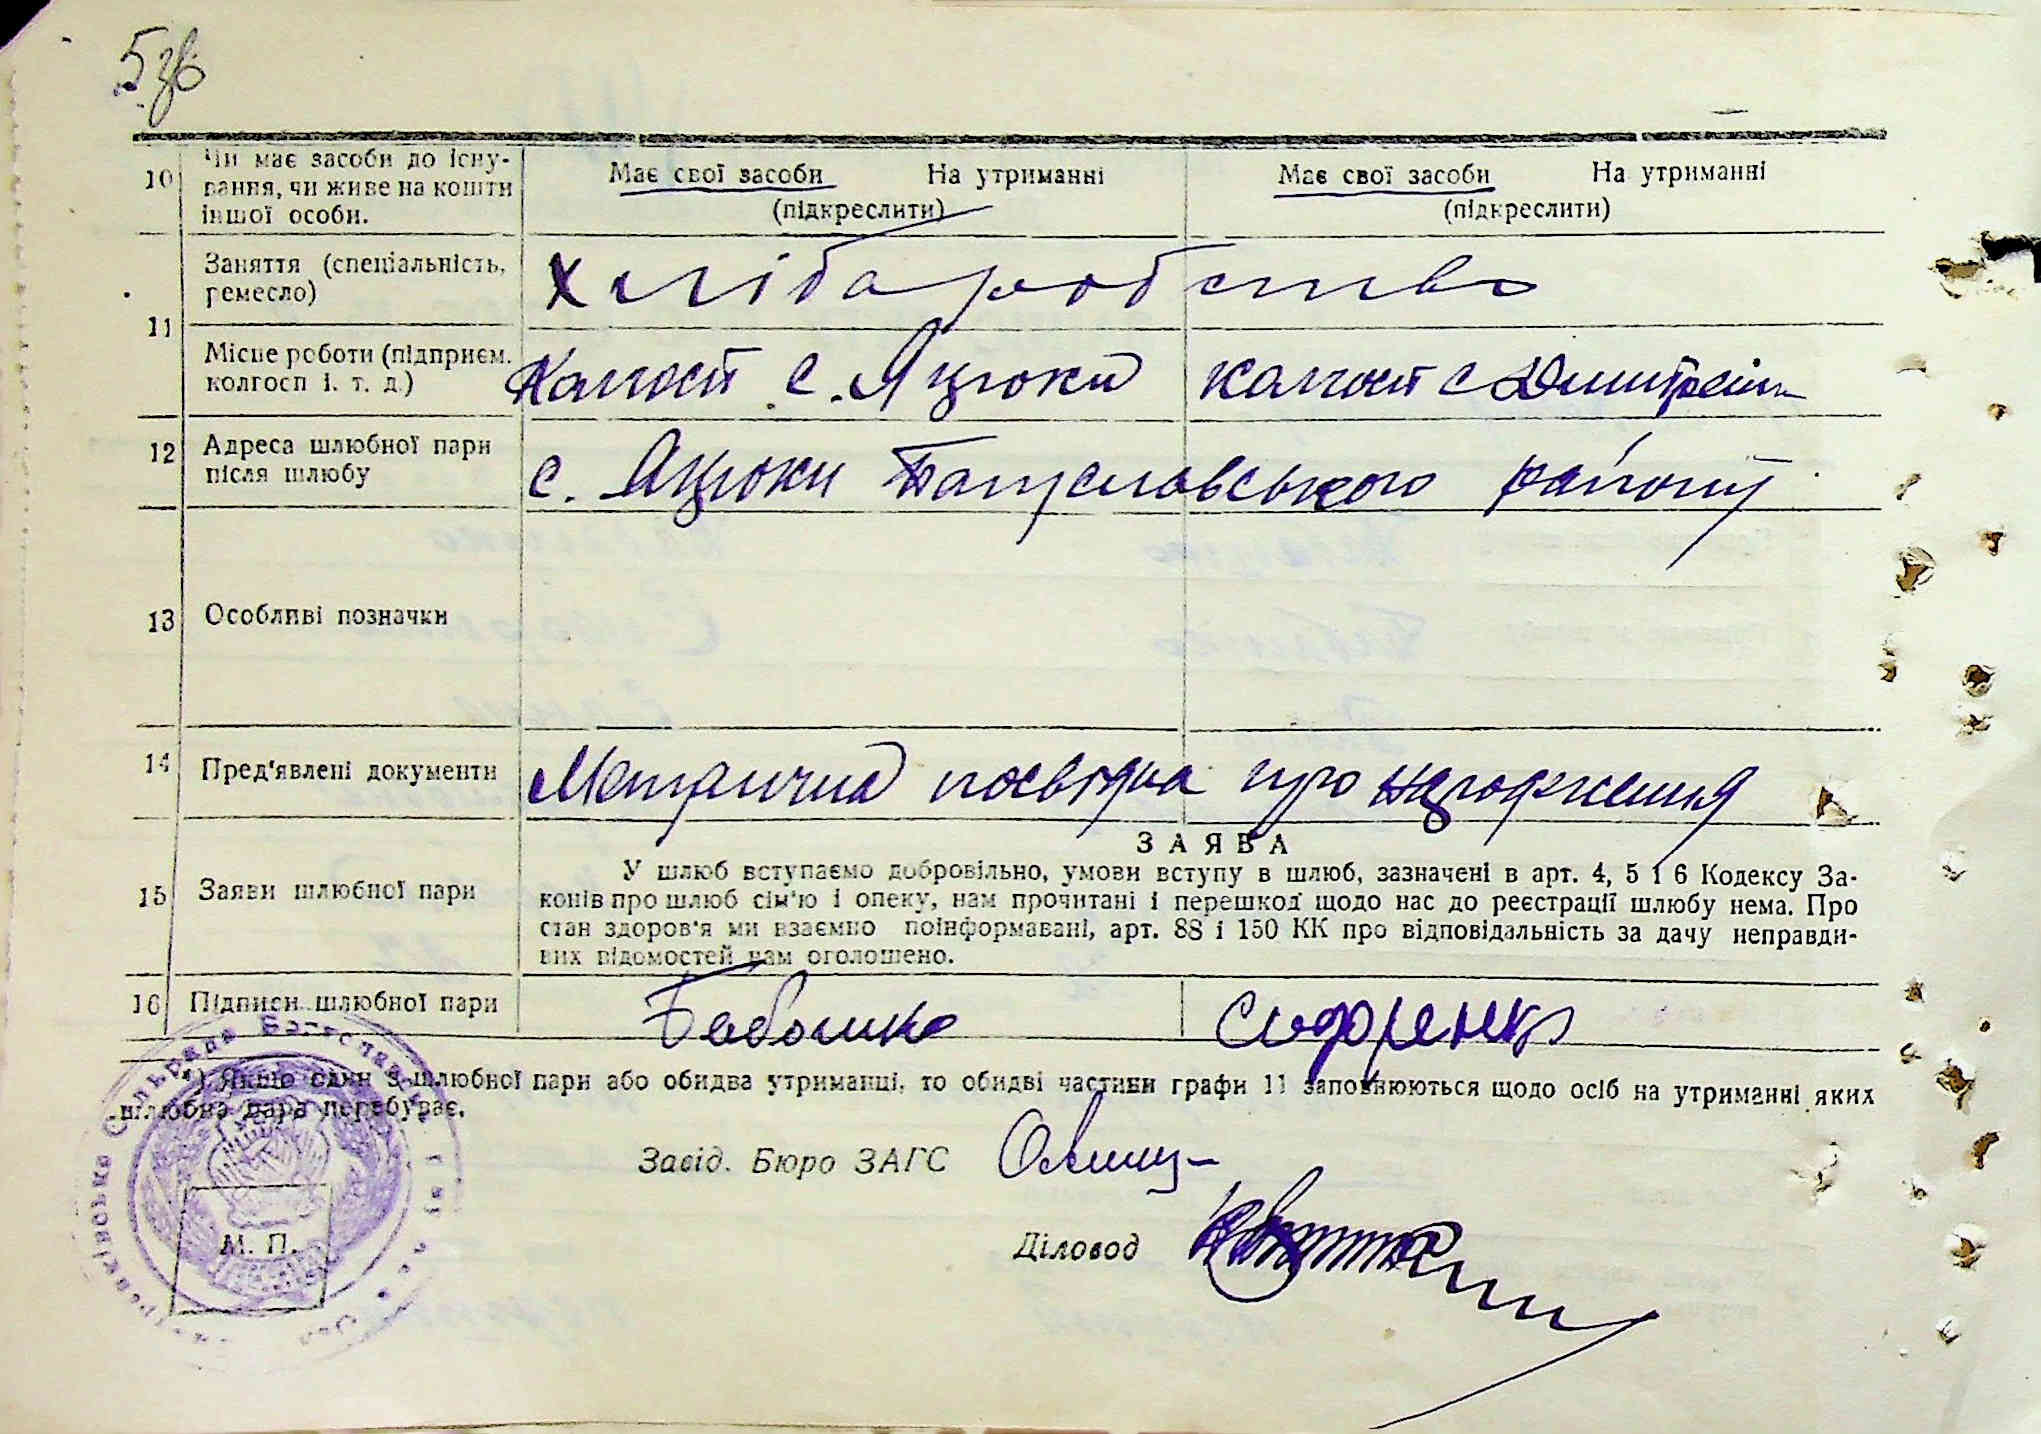 5 зв
10 Чи має засоби до існу-
вання, чи живе на кошти
іншої особи.
Має свої засоби На утриманні
(підкреслити)
Має свої засоби На утриманні
(підкреслити)
11 Заняття (спеціальність,
ремесло)
Хліборобство
Місце роботи (підприєм.
колгосп і. т. д.)
Колгосп с. Яцюки
колгосп с
12 Адреса шлюбної пари
після шлюбу
с. Яцюки Богуславського району
13 Особливі позначки
14 Пред'явлені документи
Метрична посвідка про народження
15 Заяви шлюбної пари
ЗАЯВА
У шлюб вступаємо добровільно, умови вступу в шлюб, зазначені в арт. 4, 5 і 6 Кодексу За-
конів про шлюб сім'ю і опеку, нам прочитані і перешкод щодо нас до реєстрації шлюбу нема. Про
стан здоров'я ми взаємно поінформавані, арт. 88 і 150 КК про відповідальність за дачу неправди-
вих відомостей нам оголошено.
16 Підписи шлюбної пари
Бабошко
*) Якщо один з шлюбної пари або обидва утриманці, то обидві частини графи 11 заповнюються щодо осіб на утриманні яких
шлюбна пара перебуває.
Завід. Бюро ЗАГС
Діловод
М. П.